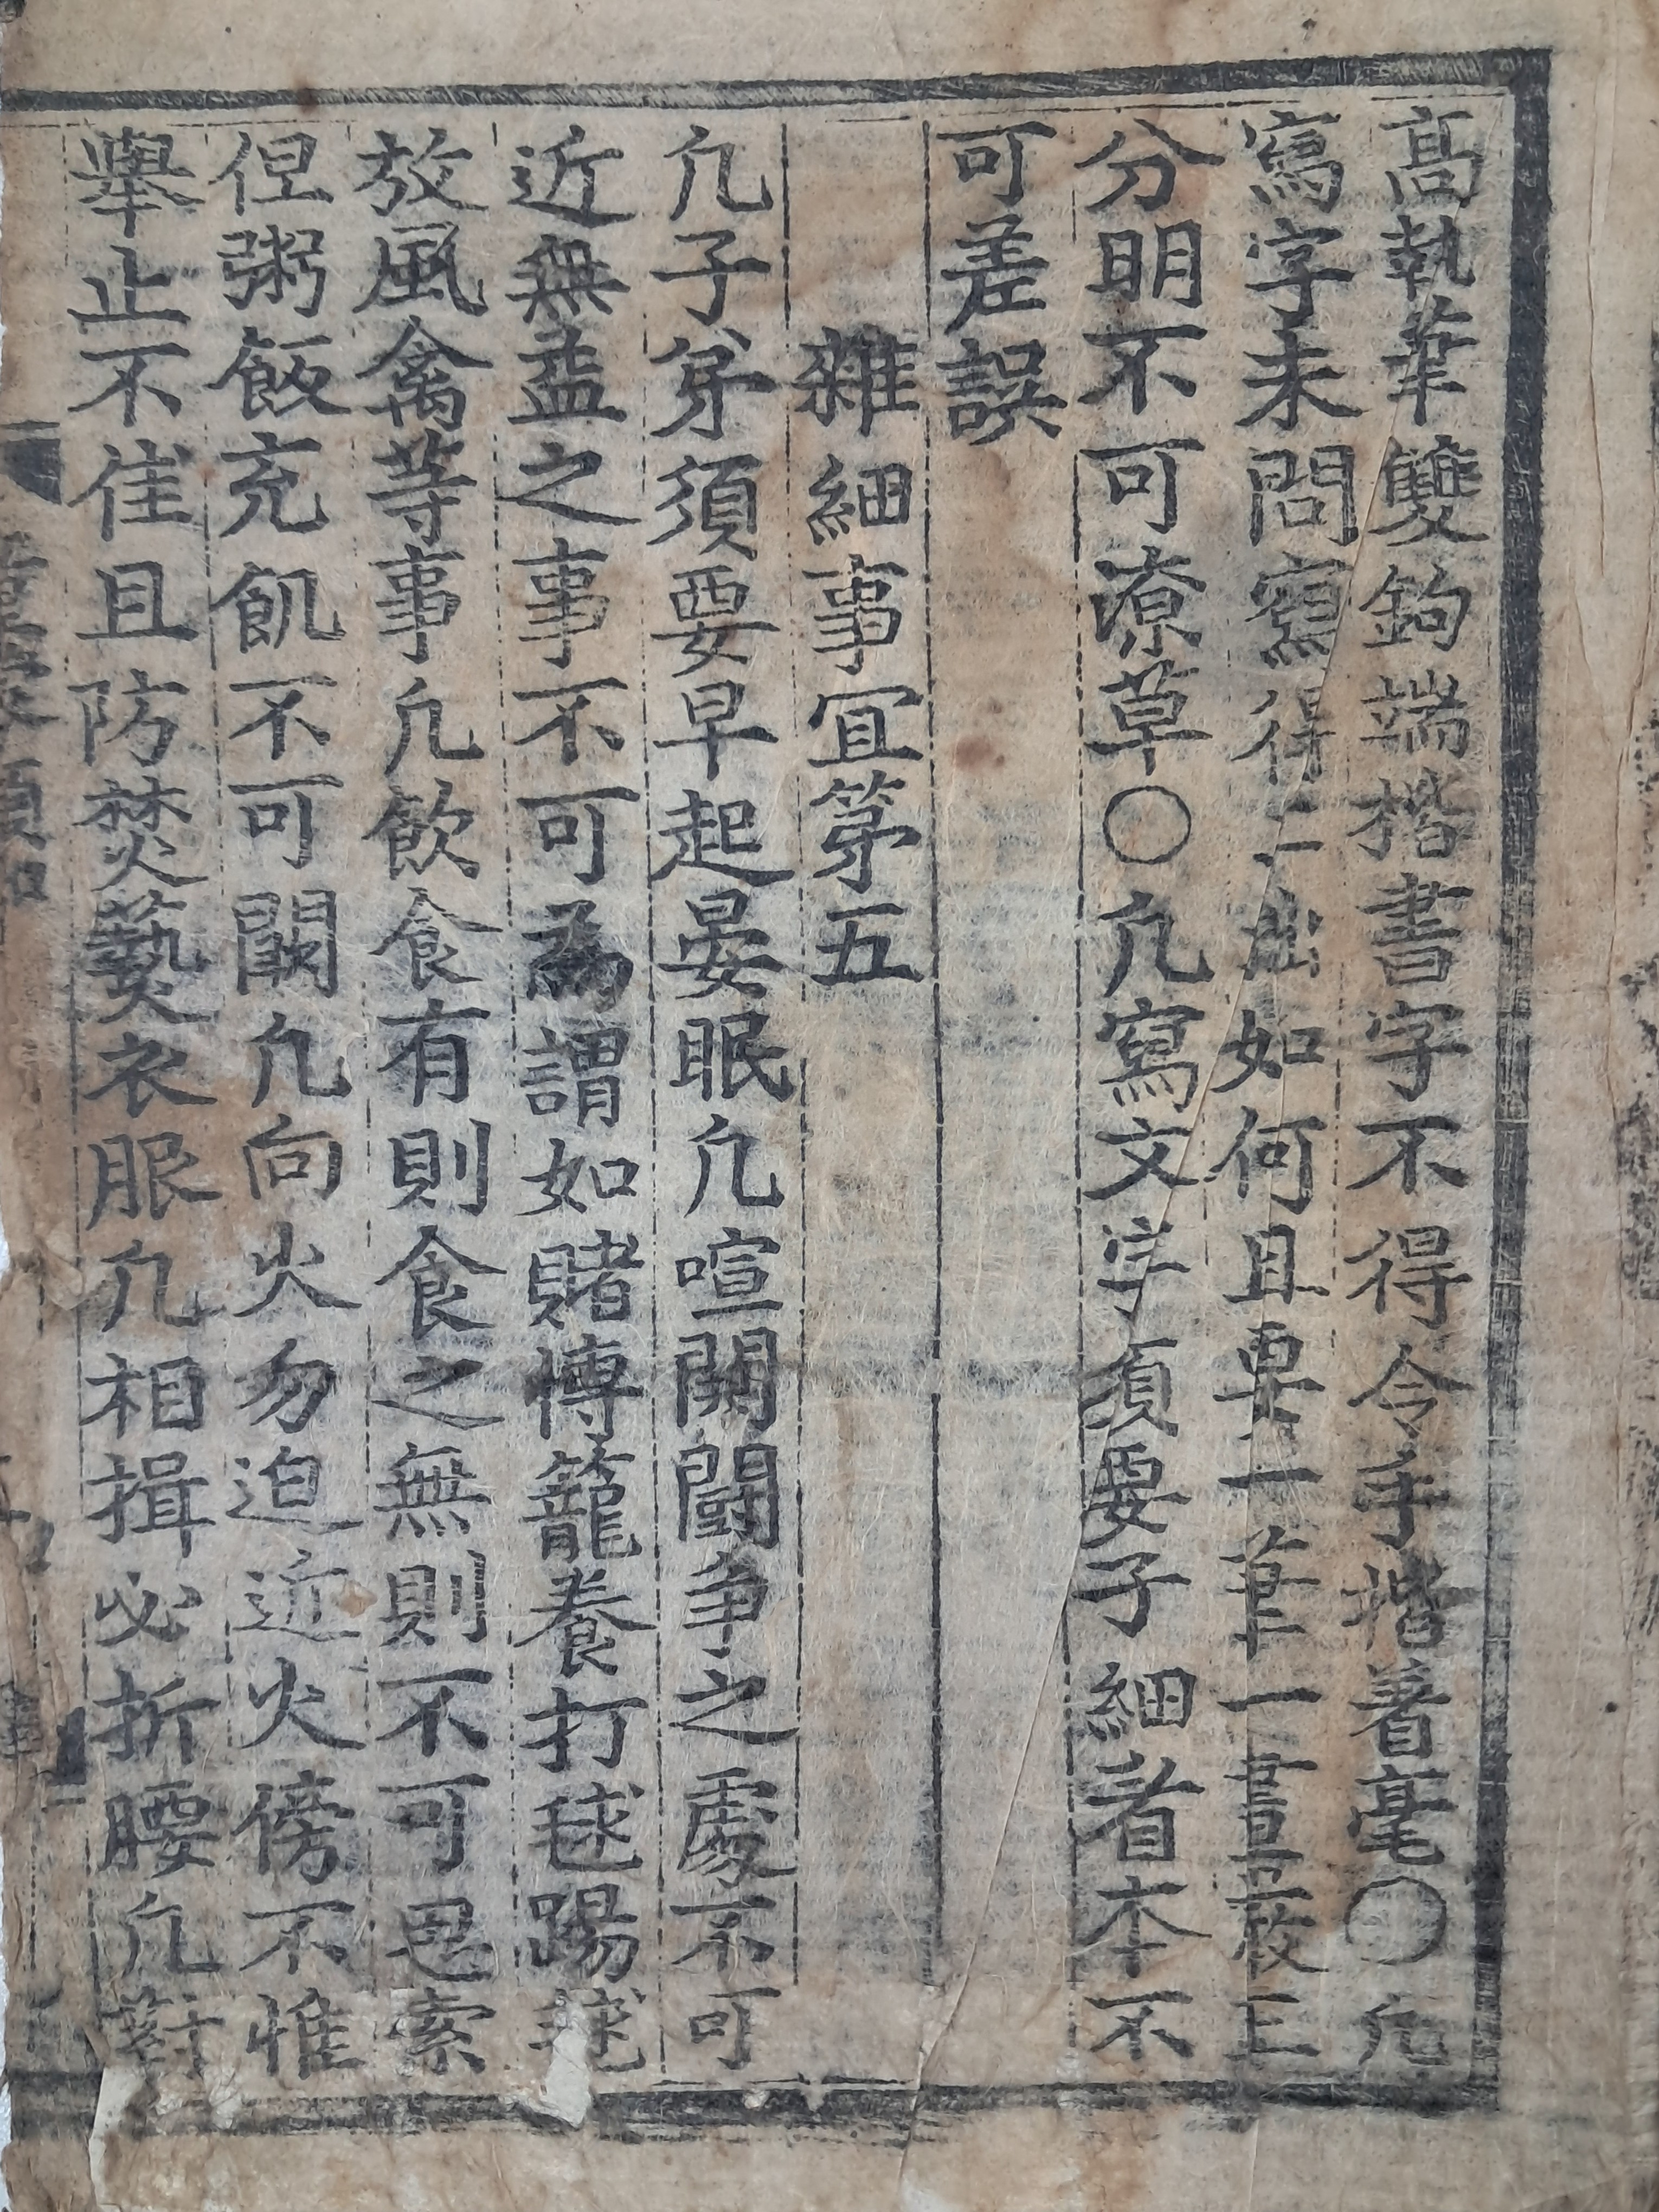 高執筆雙鉤端楷書字不得令手揩著毫○凡
寫字未問寫得工拙如何且要一筆一畫嚴正
分明不可潦草○凡寫文字須要子細看本不
可差誤
雜細事宜第五
凡子弟須要早起晏眠凡喧鬨鬪爭之處不可
近無益之事不可為謂如賭博籠養打毬踢毬
放風禽等事凡飲食有則食之無則不可思索
但粥飯充飢不可闕凡向火勿迫近火傍不惟
舉止不佳且防焚爇衣服凡相揖必折腰凡對